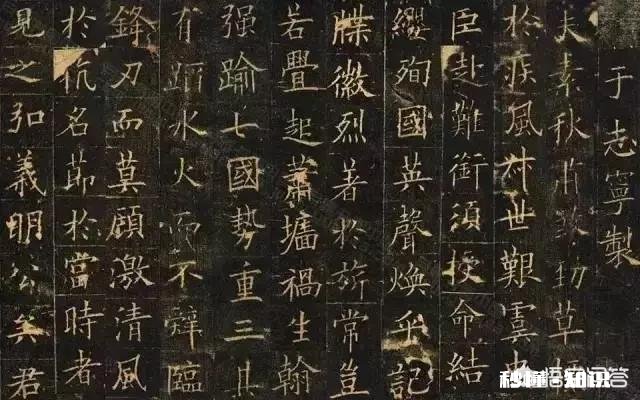 于志寧製
夫素秋肅煞勁草標
於疾風叶世艱虞忠
臣赴難銜須授命結
纓殉國英聲煥乎記
牒徽烈著於旂常豈
若釁起蕭墻禍生翰
强踰七國勢重三其
有蹈水火而不辭臨
鋒刃而莫顧激清風
於抗名節於當時者
見之弘義明公矣君
秒懂知识